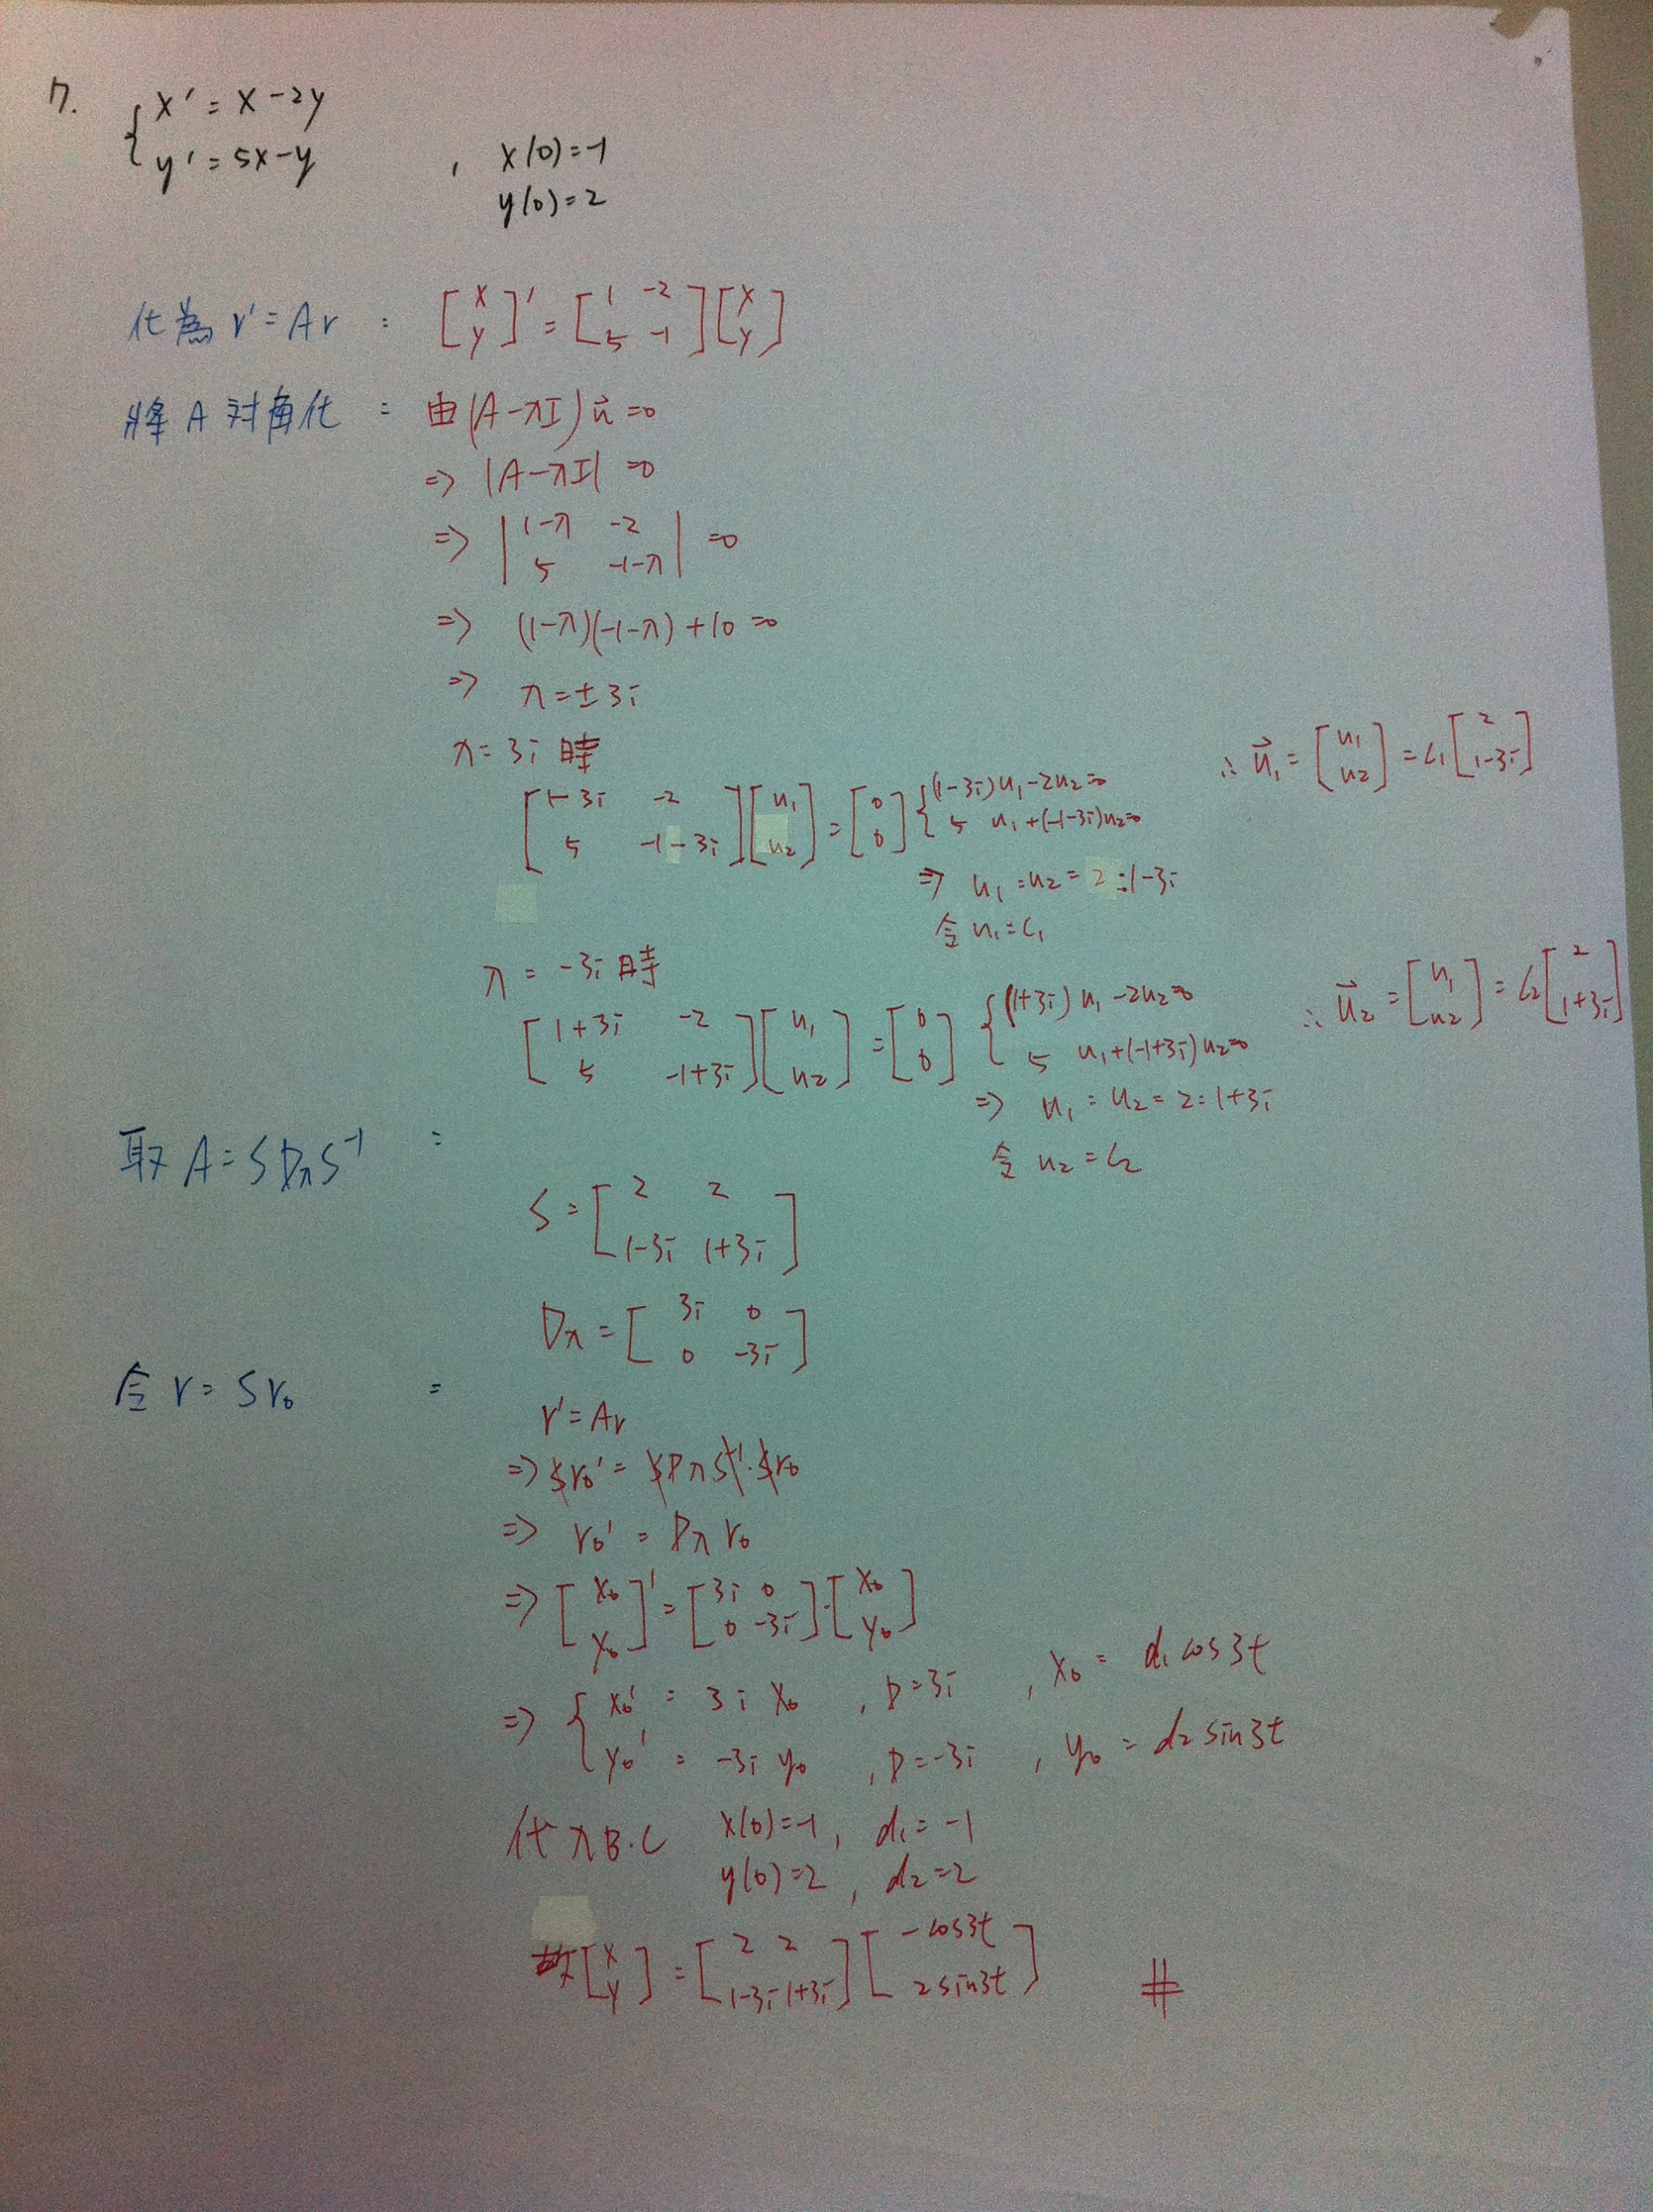 7. { x' = x - 2y
y' = 5x - y , x(0) = -1
y(0) = 2
化為 r' = Ar : [x y]' = [1 -2; 5 -1][x y]
將 A 対角化 : 由 (A - λI) u⃗ = 0
⇒ |A - λI| = 0
⇒ |1-λ -2; 5 -1-λ| = 0
⇒ (1-λ)(-1-λ) + 10 = 0
⇒ λ = ±3i
λ = 3i 時
[1-3i -2; 5 -1-3i][u1; u2] = [0; 0] { (1-3i)u1 - 2u2 = 0
5 u1 + (-1-3i)u2 = 0
∴ u⃗1 = [u1; u2] = c1 [2; 1-3i]
⇒ u1 : u2 = 2 : 1-3i
令 u1 = c1
λ = -3i 時
[1+3i -2; 5 -1+3i][u1; u2] = [0; 0] { (1+3i) u1 - 2u2 = 0
5 u1 + (-1+3i) u2 = 0
∴ u⃗2 = [u1; u2] = c2 [2; 1+3i]
⇒ u1 : u2 = 2 : 1+3i
令 u2 = c2
取 A = S Dλ S⁻¹ :
S = [2 2; 1-3i 1+3i]
Dλ = [3i 0; 0 -3i]
令 r = S r0 :
r' = Ar
⇒ S r0' = S Dλ S⁻¹ · S r0
⇒ r0' = Dλ r0
⇒ [x0; y0]' = [3i 0; 0 -3i] · [x0; y0]
⇒ { x0' = 3i x0 , D = 3i , x0 = d1 cos3t
y0' = -3i y0 , D = -3i , y0 = d2 sin3t
代入 B.C x(0) = -1 , d1 = -1
y(0) = 2 , d2 = 2
故 [x; y] = [2 2; 1-3i 1+3i][-cos3t; 2sin3t] #